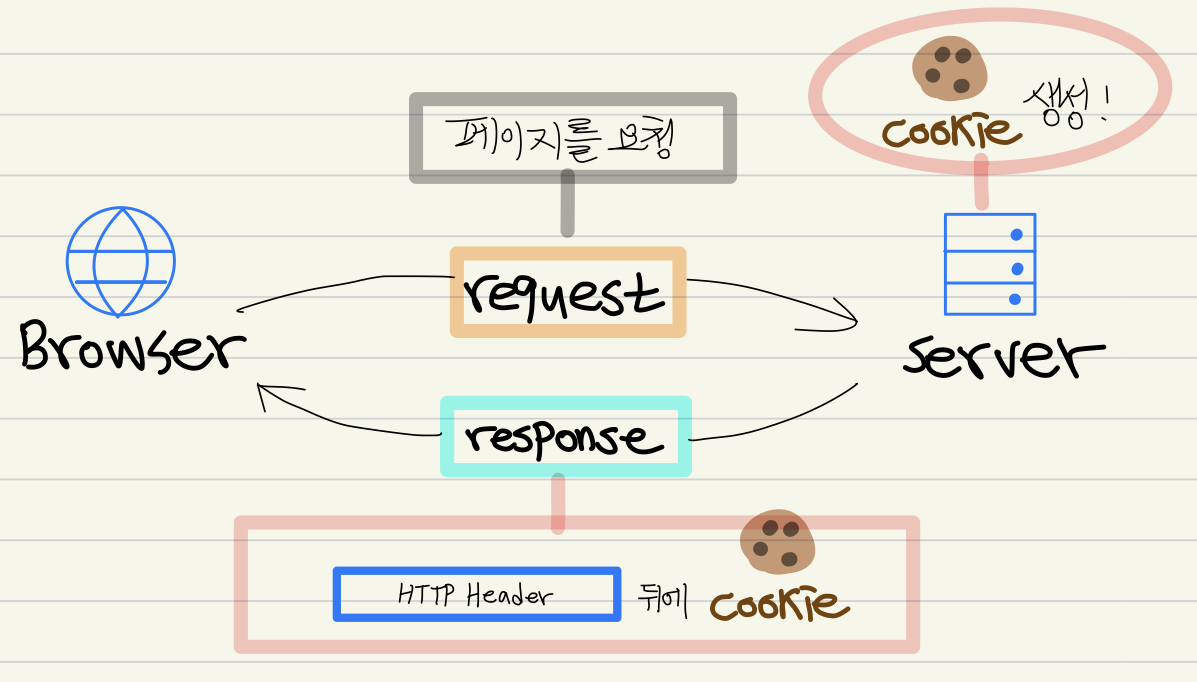 COOKIE 생성!
페이지를 요청
request
Browser
server
response
HTTP Header 뒤에 COOKIE